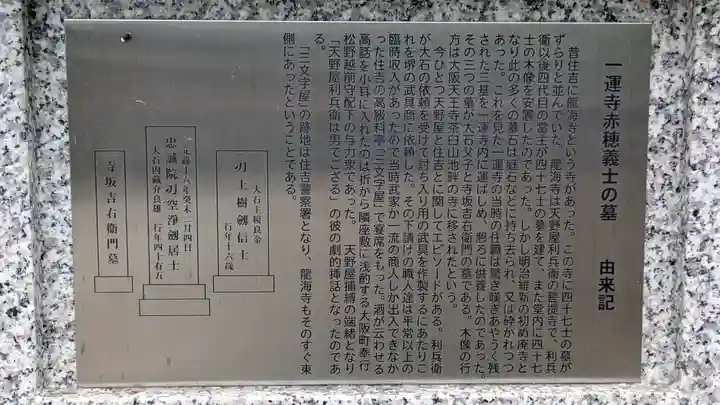 一運寺赤穂義士の墓　由来記
昔住吉に龍海寺という寺があった。この寺に四十七士の墓が
ずらりと並んでいた。龍海寺は天野屋利兵衛の菩提寺で、利兵
衛以後四代目の当主が四十七士の墓を建て、また堂内に四十七
士の木像を安置したのであった。しかし明治維新の初め廃寺と
なり此の多くの墓石は庭石などに持ち去られ、又は砕かれつつ
あった。これを見た一運寺の当時の住職は驚き嘆きあやうく残
された三基を一運寺内に運ばしめ、懇ろに供養したのであった。
その三つの墓が大石父子と寺坂吉右衛門の墓である。木像の行
方は大阪天王寺茶臼山地畔の寺に移されたという。
今ひとつ天野屋と住吉とに関してエピソードがある。利兵衛
が大石の依頼を受けて討ち入り用の武具を作製するにあたりこ
れを堺の武具商に依頼した。その下請けの職人達は平常以上の
臨時収入があったので当時武家か一流の商人しか出入できなか
った住吉の高級料亭「三文字屋」で宴席をもった。酒が云わせる
高話を小耳に入れたのは折から隣座敷に浅酌する大阪町奉行
松野越前守配下の与力衆であった。　天野屋捕縛の端緒となり
「天野屋利兵衛は男でござる」の彼の劇的挿話となったのであ
る。
「三文字屋」の跡地は住吉警察署となり、龍海寺もそのすぐ東
側にあったということである。
大石主税良金
刃上樹劔信士
行年十六歳
元禄十六年癸未二月四日
忠誠院刃空浄劔居士
大石内蔵介良雄　行年四十有五
寺坂吉右衛門墓